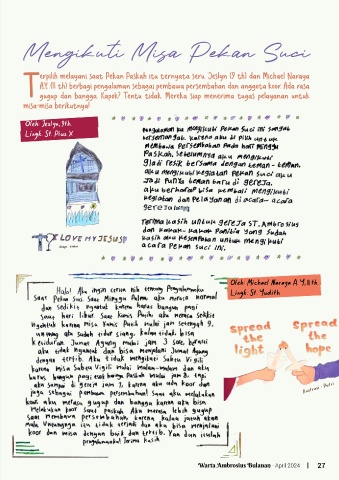 Mengikuti Misa Pekan Suci
Terpilih melayani saat Pekan Paskah itu ternyata seru. Jeslyn (9 th) dan Michael Naraya
A.Y. (11 th) berbagi pengalaman sebagai pembawa persembahan dan anggota koor. Ada rasa
gugup dan bangga. Kapok? Tentu tidak. Mereka siap menerima tugas pelayanan untuk
misa-misa berikutnya!
Oleh: Jeslyn, 9th
Lingk. St. Pius X
Pengalaman ku mengikuti Pekan Suci ini sangat
bersemangat. karena aku di pilih untuk
membawa Persembahan Pada hari Minggu
Paskah. Sebelumnya aku mengikuti
gladi resik bersama dengan teman-teman.
aku mengikuti kegiatan Pekan Suci aku
Jadi Punya teman baru di gereja.
aku berharap bisa kembali mengikuti
kegiatan dan Pelayanan di acara-acara
gereja
Terima kasih untuk gereja ST. Ambrosius
dan kakak-kakak Panitia yang sudah
kasih aku kesempatan untuk mengikuti
acara Pekan Suci ini.
I LOVE MY JESUS!!
Oleh: Michael Naraya A.Y, 11 th
Lingk. St. Yudith
Halo! Aku ingin cerita nih tentang Pengalamanku
saat Pekan Suci. Saat Minggu Palma aku merasa normal
dan sedikit ngantuk karena harus bangun pagi
saat hari libur. Saat Kamis Putih aku merasa sedikit
ngantuk karena misa Kamis Putih mulai jam setengah 9,
untung aku sudah tidur siang, kalau tidak bisa
ketiduran. Jumat Agung mulai jam 3 sore berarti
aku tidak ngantuk dan bisa menjalani Jumat Agung
dengan tertib. Aku tidak mengikuti Sabtu Vigili
karena misa Sabtu Vigili mulai malam-malam dan aku
harus bangun pagi, esok harinya Paskah mulai jam 8, tapi
aku sampai di gereja jam 7, karena aku ada koor dan
juga sebagai pembawa persembahan! Saat aku melakukan
koor, aku merasa gugup dan bangga karena aku bisa
melakukan koor saat paskah. Aku merasa lebih gugup
saat membawa persembahan, karena kalau jatuh akan
malu. Untungnya itu tidak terjadi dan aku bisa menjalani
koor dan misa dengan baik dan tertib. Yan dan itulah
pengalamanku! Terima kasih
spread
the
light
spread
the
hope
Warta Ambrosius Bulanan April 2024 | 27